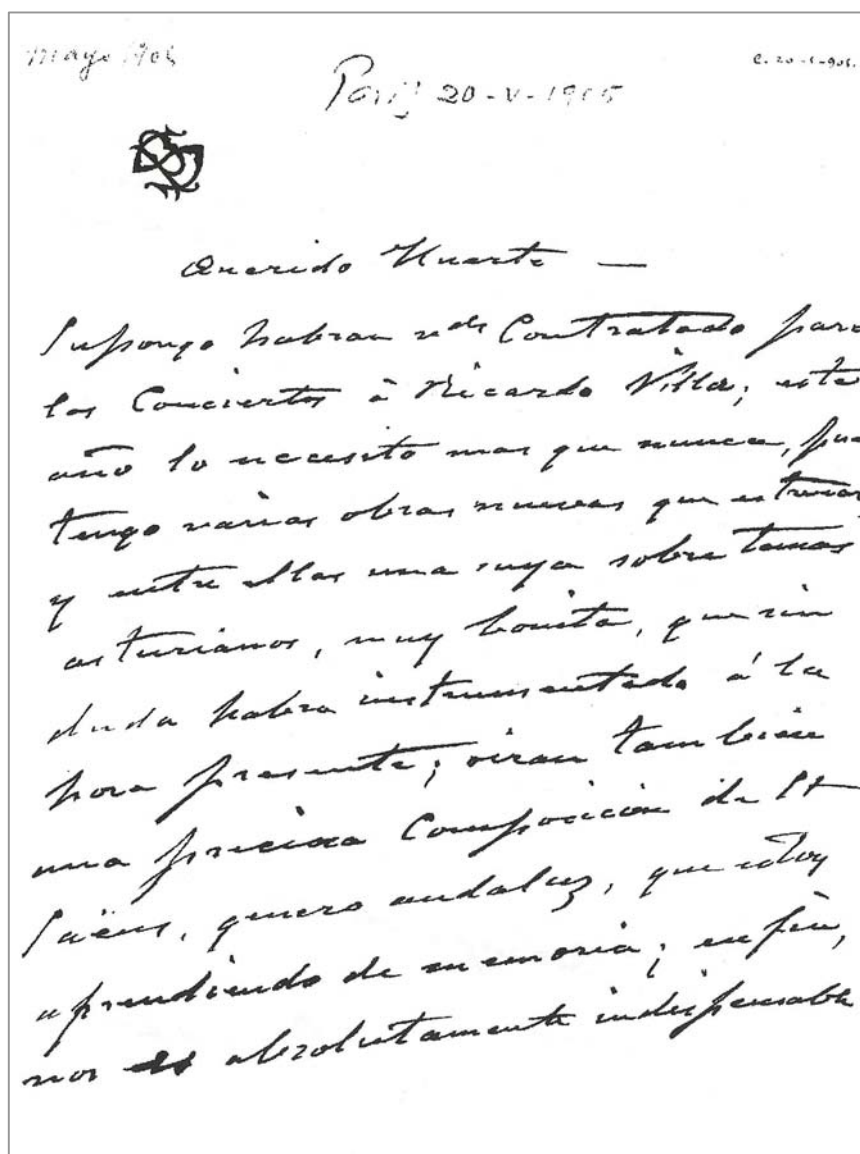 Mayo 1905
C. 20-5-905.
París 20-V-1905
Querido Huarte —
Supongo habran uds Contratado para
los Conciertos á Ricardo Villa; este
año lo necesito mas que nunca, pues
tengo varias obras nuevas que estrenar,
y entre ellas una suya sobre temas
asturianos, muy bonita, que sin
duda habra instrumentado á la
hora presente; oiran tambien
una preciosa Composición de St
Saëns, genero andaluz, que estoy
aprendiendo de memoria; en fin,
nos es absolutamente indispensable